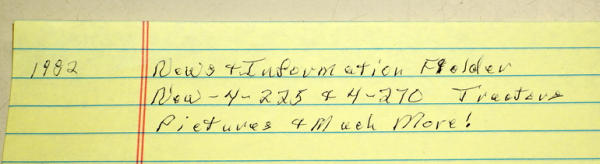 1982 News & Information Folder
New-4-225 & 4-270 Tractors
Pictures & Much More!